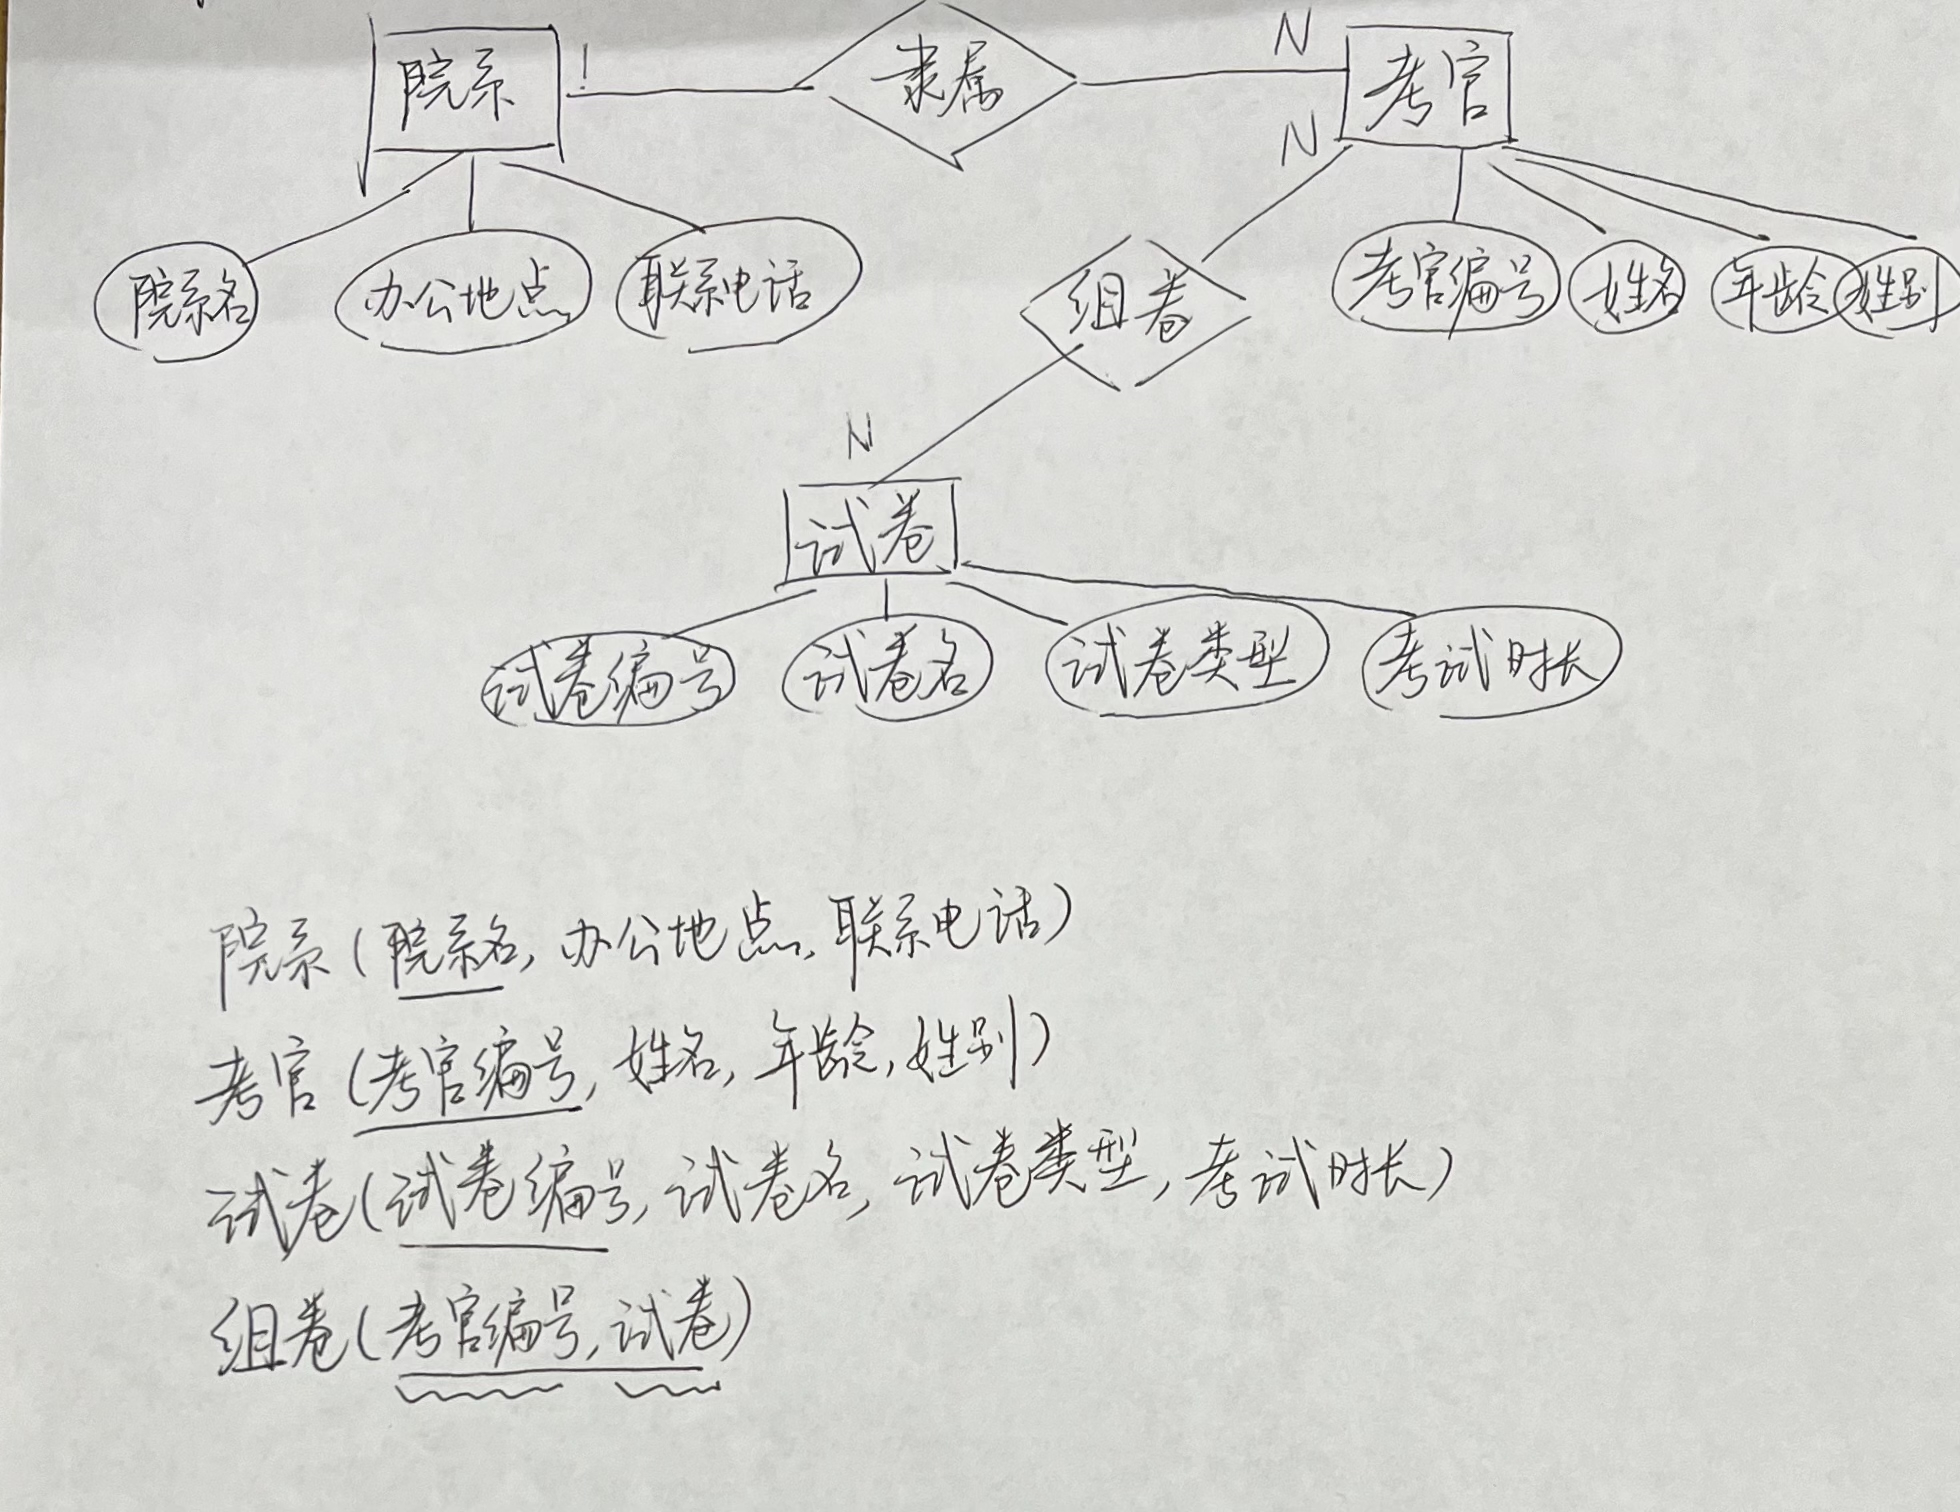 院系 1 隶属 N 考官
N
院系名 办公地点 联系电话 组卷 考官编号 姓名 年龄 姓别
N
试卷
试卷编号 试卷名 试卷类型 考试时长
院系(院系名, 办公地点, 联系电话)
考官(考官编号, 姓名, 年龄, 姓别)
试卷(试卷编号, 试卷名, 试卷类型, 考试时长)
组卷(考官编号, 试卷)